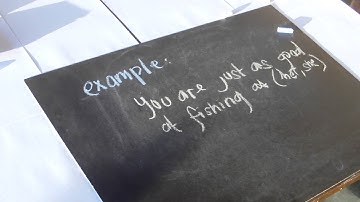 example:
you are just as good
at fishing as (me, she)